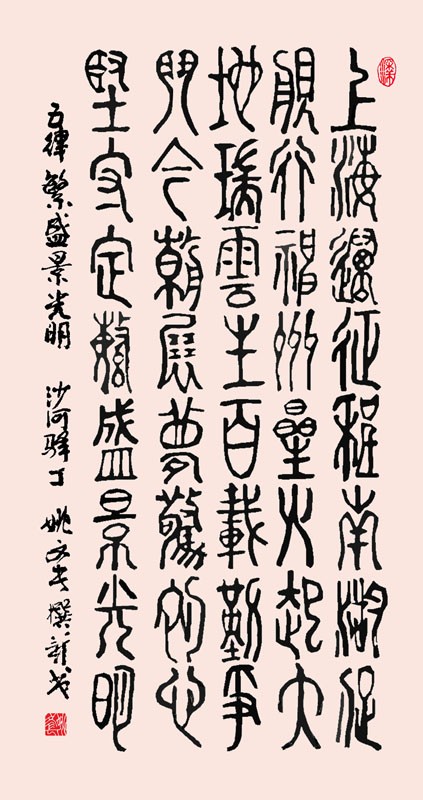 上海邁征程南湖促
舰行神州星火起大
地瑞雲生百載勤爭
鬥今朝展夢驚初心
堅守定繁盛景光明
五律 繁盛景光明 沙河驿丁 姚文 撰